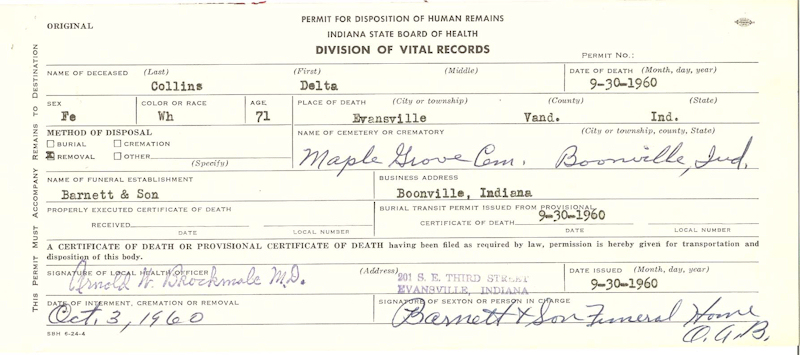 ORIGINAL
PERMIT FOR DISPOSITION OF HUMAN REMAINS
INDIANA STATE BOARD OF HEALTH
DIVISION OF VITAL RECORDS
PERMIT NO.:
THIS PERMIT MUST ACCOMPANY REMAINS TO DESTINATION
NAME OF DECEASED (Last) (First) (Middle) DATE OF DEATH (Month, day, year)
Collins Delta 9-30-1960
SEX COLOR OR RACE AGE PLACE OF DEATH (City or township) (County) (State)
Fe Wh 71 Evansville Vand. Ind.
METHOD OF DISPOSAL NAME OF CEMETERY OR CREMATORY (City or township, county, State)
BURIAL CREMATION
REMOVAL OTHER (Specify) Maple Grove Cem. Boonville, Ind.
NAME OF FUNERAL ESTABLISHMENT BUSINESS ADDRESS
Barnett & Son Boonville, Indiana
PROPERLY EXECUTED CERTIFICATE OF DEATH BURIAL TRANSIT PERMIT ISSUED FROM PROVISIONAL
RECEIVED CERTIFICATE OF DEATH 9-30-1960
DATE LOCAL NUMBER DATE LOCAL NUMBER
A CERTIFICATE OF DEATH OR PROVISIONAL CERTIFICATE OF DEATH having been filed as required by law, permission is hereby given for transportation and
disposition of this body.
SIGNATURE OF LOCAL HEALTH OFFICER (Address) 201 S. E. THIRD STREET DATE ISSUED (Month, day, year)
Arnold W. M.D. EVANSVILLE, INDIANA 9-30-1960
DATE OF INTERMENT, CREMATION OR REMOVAL SIGNATURE OF SEXTON OR PERSON IN CHARGE
Oct. 3, 1960 Barnett & Son Funeral Home
O.G.B.
SBH 6-24-4